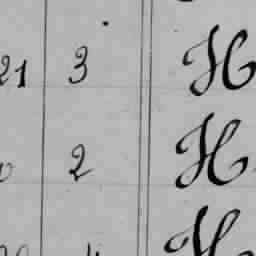 21 3 H
2 H
H